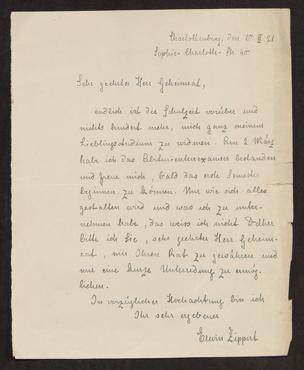 Charlottenburg, den 10. III 21
Sophie-Charlotte-Str. 40.
Sehr geehrter Herr Geheimrat,
endlich ist die Schulzeit vorüber und
nichts hindert mehr, mich ganz meinem
Lieblingsstudium zu widmen. Am 2. März
habe ich das Abiturientenexamen bestanden
und freue mich, bald das erste Semester
beginnen zu können. Nur wie sich alles
gestalten wird und was ich zu unter-
nehmen habe, das weiss ich nicht. Daher
bitte ich Sie, sehr geehrter Herr Geheim-
rat, mir Ihren Rat zu gewähren und
mir eine kurze Unterredung zu ermög-
lichen.
In vorzüglicher Hochachtung bin ich
Ihr sehr ergebener
Erwin Zippert